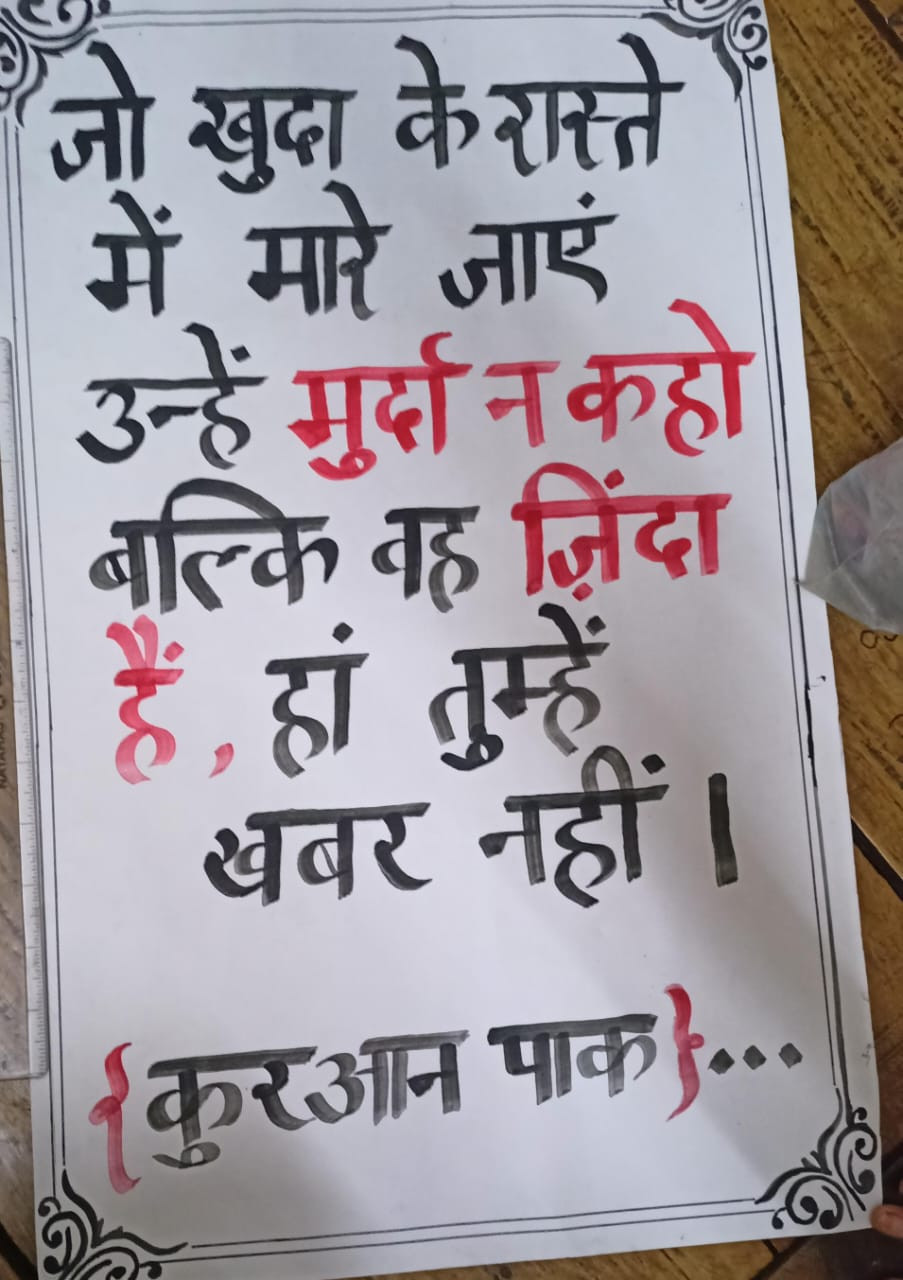 जो खुदा के रास्ते
में मारे जाएं
उन्हें मुर्दा न कहो
बल्कि वह ज़िंदा
हैं, हां तुम्हें
खबर नहीं।
{कुरआन पाक}...